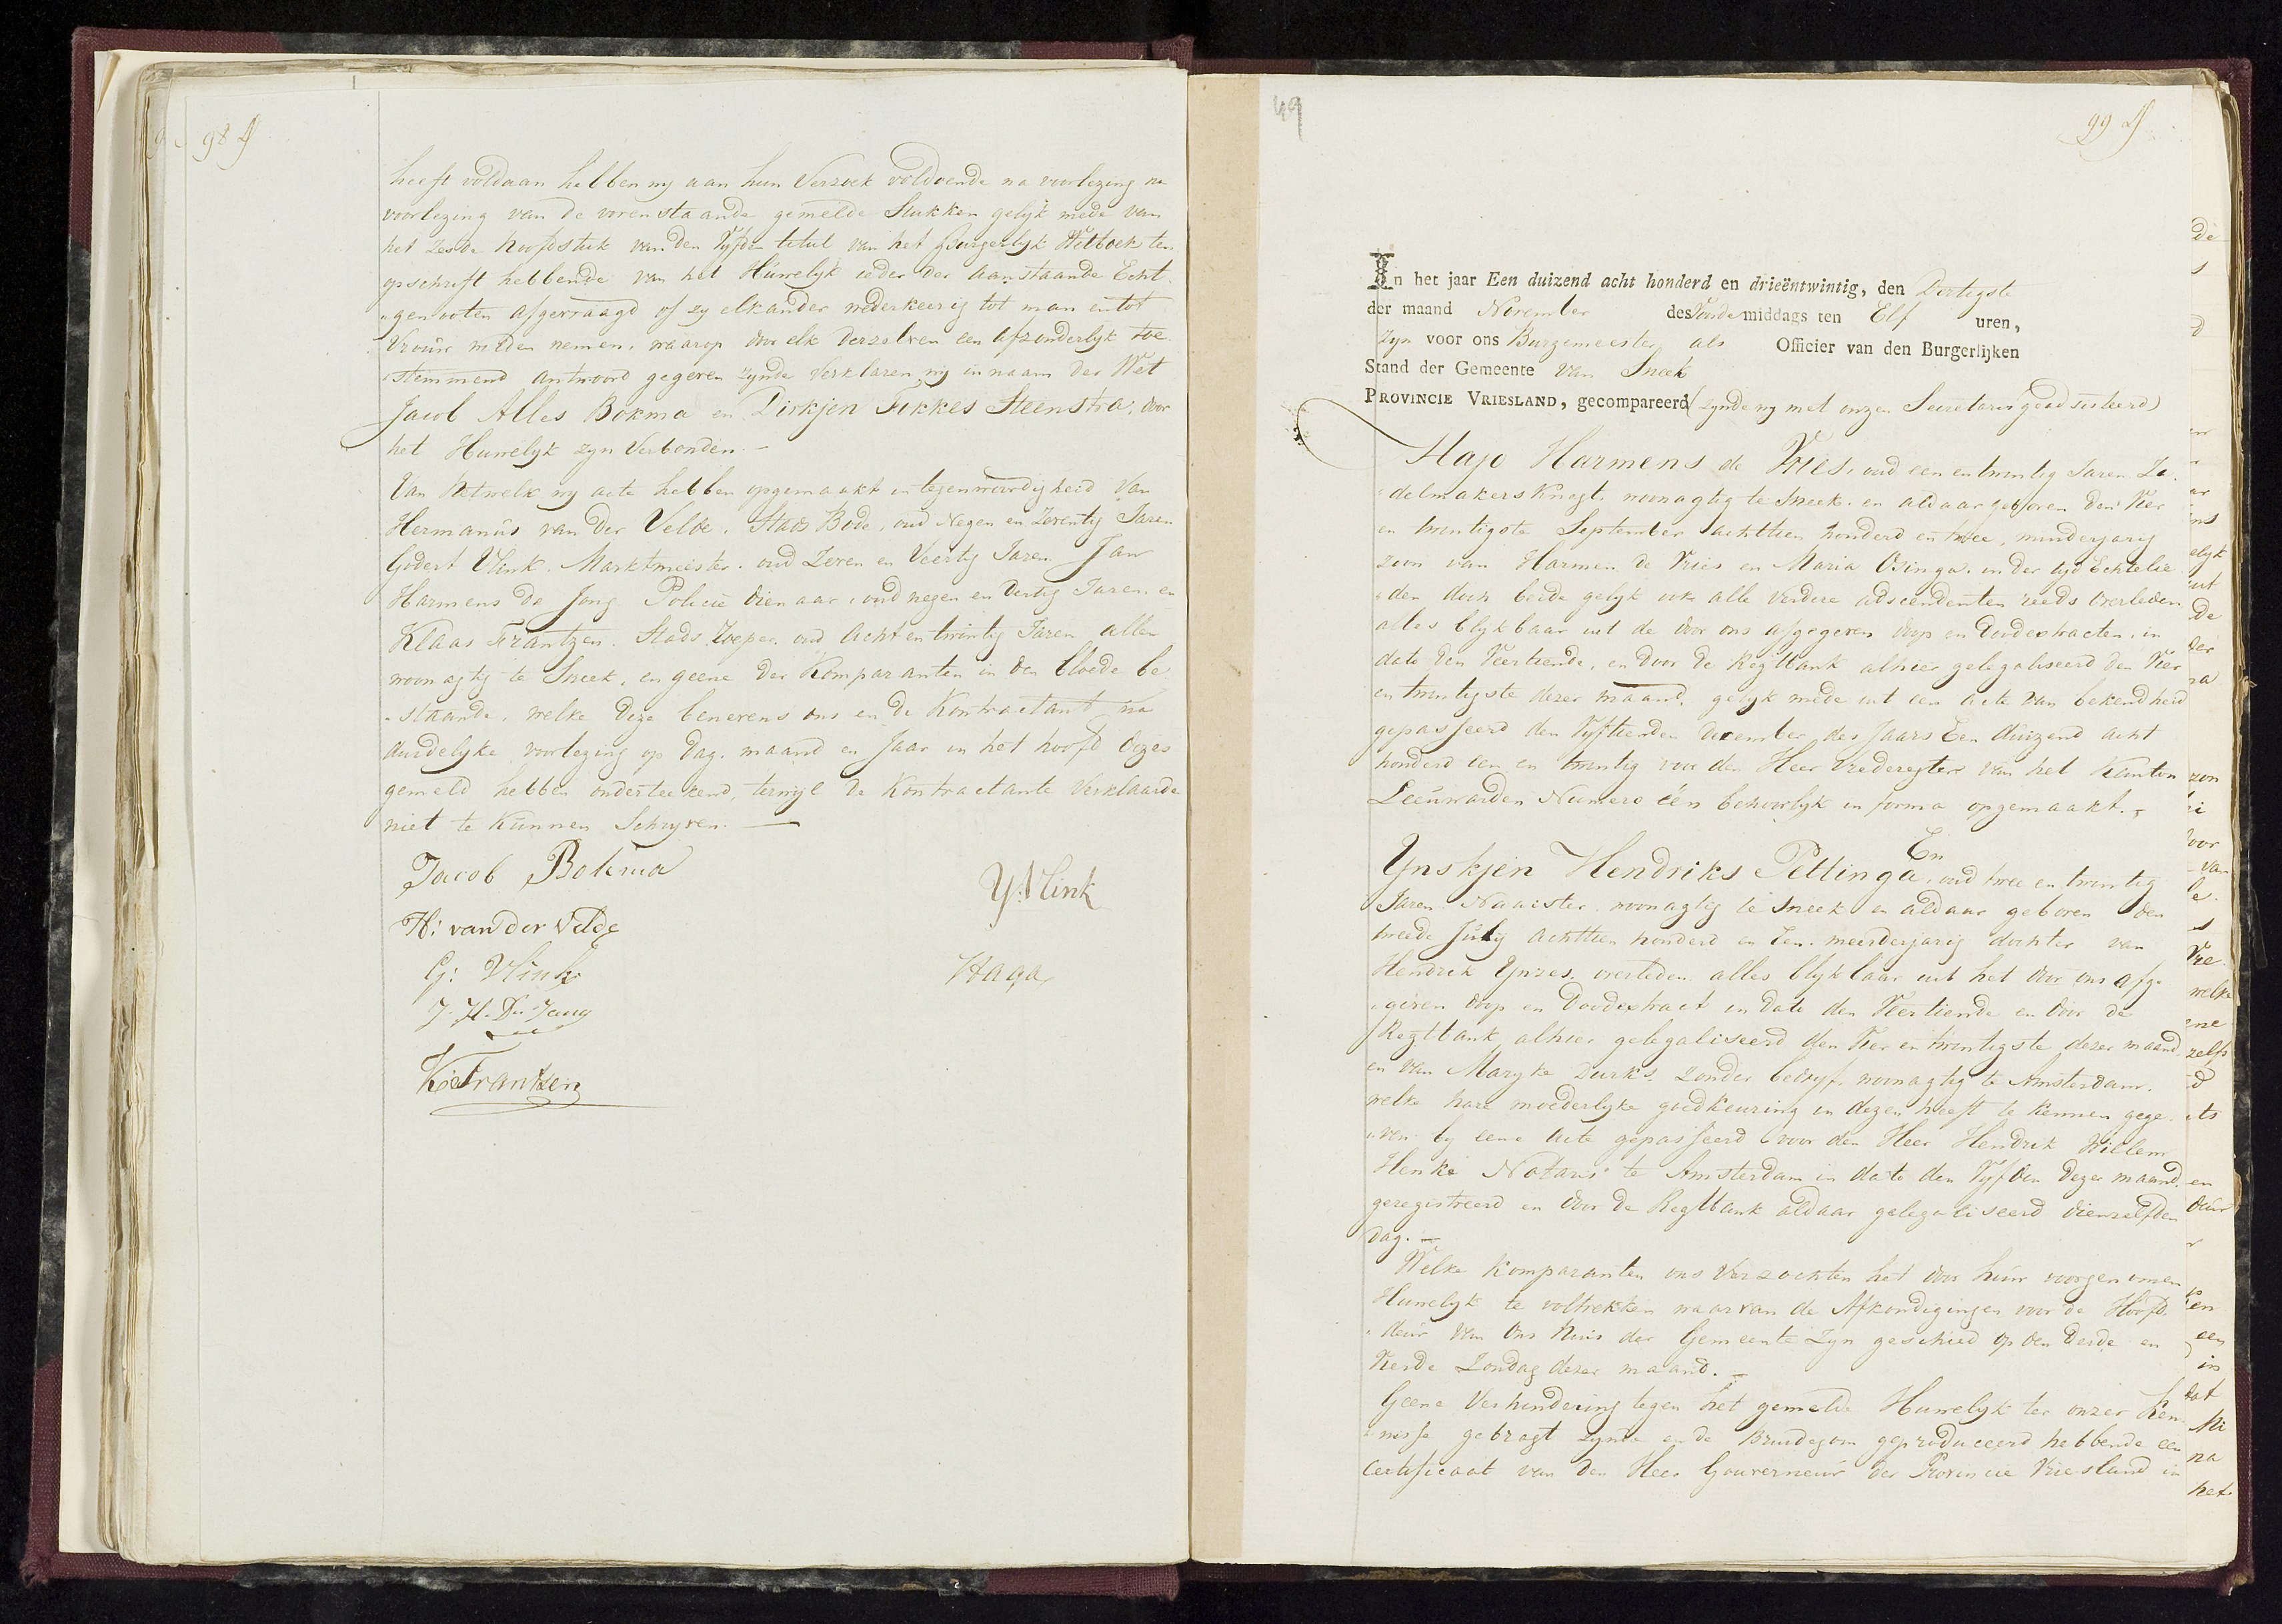 98
heeft voldaan hebben wy aan hun Verzoek voldoende na voorlezing na
voorlezing van de vorenstaande gemelde Stukken gelyk mede van
het zesde hoofdstuk van den Vyfden titul van het Burgerlyk Wetboek ten
opschrift hebbende van het Huwelyk ieder der aanstaande Echt
"genooten afgevraagd of zy elkander wederkeerig tot man en tot
Vrouw wilden nemen, waarop door elk derzelven een afzonderlyk toe
"stemmend antwoord gegeven zynde verklaren wy in naam der Wet
Jacob Alles Bokma en Dirkjen Fekkes Steenstra, door
het Huwelyk zyn Verbonden.—
Van Hetwelk wy acte hebben opgemaakt in tegenwoordigheid van
Hermanus van der Velde, Stads Bode, oud Negen en Zeventig Jaren
Godert Vlink, Marktmeester, oud Zeven en Veertig Jaren Jan
Harmens de Jong Policie dienaar, oud negen en dertig Jaren, en
Klaas Frantzen, Stads Roeper, oud Acht en twintig Jaren allen
woonagtig te Sneek, en geene der Komparanten in den bloede be
"staande, welke deze benevens ons en de Kontractant na
duidelyke voorlezing op dag, maand en Jaar in het hoofd dezes
gemeld hebben onderteekend, terwyl de Kontractante Verklaarde
niet te kunnen Schryven.—
Jacob Bokma
Y. Vlink
H: van der Velde
G: Vlink
Haga
J. H. De Jong
K: Frantzen
49
99
In het jaar Een duizend acht honderd en drieëntwintig, den Dertigste
der maand November des Voorde middags ten Elf uren,
Zyn voor ons Burgemeester als Officier van den Burgerlijken
Stand der Gemeente van Sneek
PROVINCIE VRIESLAND, gecompareerd (zynde wy met onzen Secretaris geadsisteerd)
Hajo Harmens de Vries, oud een en twintig Jaren Za
"delmakersKnegt, woonagtig te Sneek en aldaar geboren den Vier
en twintigste September achttien honderd en twee, minderjarig
zoon van Harmen de Vries en Maria Osinga, in der tyd Echtelie
"den doch beide gelyk ook alle verdere adscendenten reeds overleden
alles blykbaar uit de door ons afgegeven doop en doodextracten, in
dato den Veertiende, en door de Regtbank alhier gelegaliseerd den Vier
en twintigste dezer maand, gelyk mede uit een acte van bekendheid
gepasseerd den Vyftienden december des Jaars Een duizend acht
honderd een en twintig voor den Heer Vrederegter van het Kanton
Leeuwarden Numero één behoorlyk in forma opgemaakt.—
En
Ynskjen Hendriks Pettinga, oud twee en twintig
Jaren Naaister, woonagtig te Sneek en aldaar geboren den
tweede July achttien honderd en Een, meerderjarig dochter van
Hendrik Ynzes, overleden, alles blykbaar uit het door ons afge
"geven doop en doodextract in dato den Veertiende en door de
Regtbank alhier gelegaliseerd den Vier en twintigste dezer maand
en van Maryke Durks, zonder bedryf, woonagtig te Amsterdam,
welke hare moederlyke goedkeuring in dezen heeft te kennen gege
"ven by eene acte gepasseerd voor den Heer Hendrik Willem
Henke Notaris te Amsterdam in dato den Vyfden dezer maand,
geregistreerd en door de Regtbank aldaar gelegaliseerd dienzelfden
dag.—
Welke Komparanten ons verzochten het door hun voorgenomen
Huwelyk te voltrekken waarvan de Afkondigingen voor de Hoofd
"deur van Ons Huis der Gemeente Zyn geschied op den derde en
Vierde Zondag dezer maand.—
Geene Verhindering tegen het gemelde Huwelyk ter onzer Ken
"nisse gebragt zynde en de Bruidegom geproduceerd hebbende een
Certificaat van den Heer Gouverneur der Provincie Vriesland in